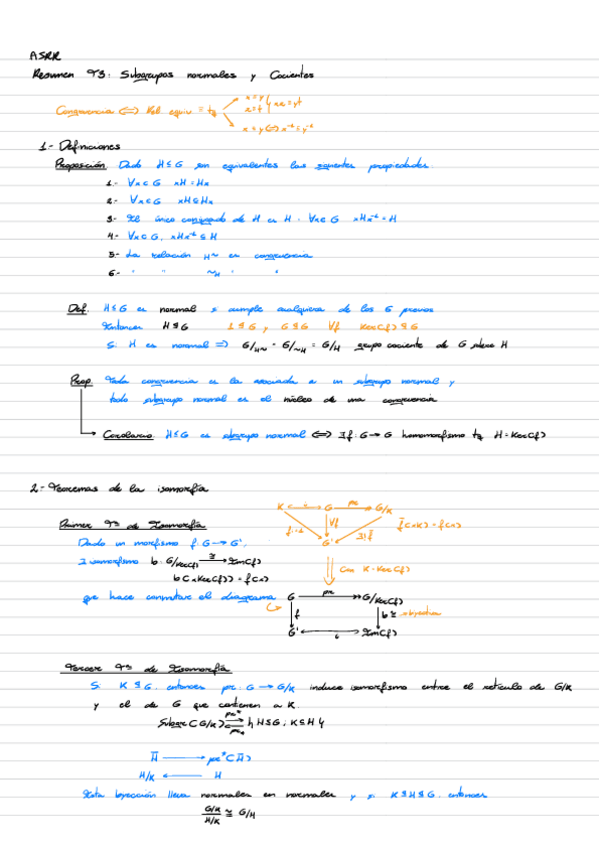 ASRR
Resumen T3: Subgrupos normales y Cocientes
Congruencia ⟺ Rel equiv ≡ tq
x≡y
z≡t
xz≡yt
x≡y ⟺ x⁻¹≡y⁻¹
1- Definiciones
Proposición. Dado H≤G son equivalentes las siguientes propiedades.
1.- ∀x∈G xH=Hx
2.- ∀x∈G xH⊆Hx
3- El único conjugado de H es H. ∀x∈G xHx⁻¹=H
4.- ∀x∈G, xHx⁻¹⊆H
5- La relación H~ es congruencia
6- " " ~H " "
Def. H≤G es normal si cumple cualquiera de las 6 previas
Entonces H⊴G 1⊴G y G⊴G ∀f Ker(f)⊴G
Si H es normal ⟹ G/H~ = G/~H = G/H grupo cociente de G sobre H
Prop. Toda congruencia es la asociada a un subgrupo normal y
todo subgrupo normal es el núcleo de una congruencia
Corolario. H≤G es subgrupo normal ⟺ ∃f: G→G homomorfismo tq H=Ker(f)
2- Teoremas de la isomorfía
K G pr G/K
∀f
∃!f̄
f̄(x)=f(x)
G'
Primer Tª de Isomorfía
Dado un morfismo f: G→G',
∃ isomorfismo b: G/Ker(f) ≅ Im(f)
b(xKer(f)) = f(x)
que hace conmutar el diagrama
Con K=Ker(f)
G pr G/Ker(f)
f b ≅
G' i Im(f)
Tercer Tª de Isomorfía
Si K⊴G, entonces pr: G→G/K induce isomorfismo entre el retículo de G/K
y el de G que contienen a K.
Subgr(G/K) pr* {H≤G; K≤H}
H̄ → pr*(H̄)
H/K ← H
Esta biyección lleva normales en normales y si K⊴H⊴G, entonces
(G/K)/(H/K) ≅ G/H